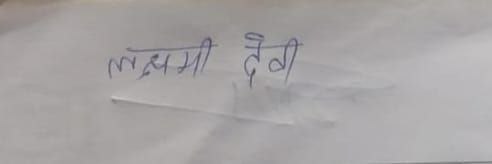 लक्षमी देवी